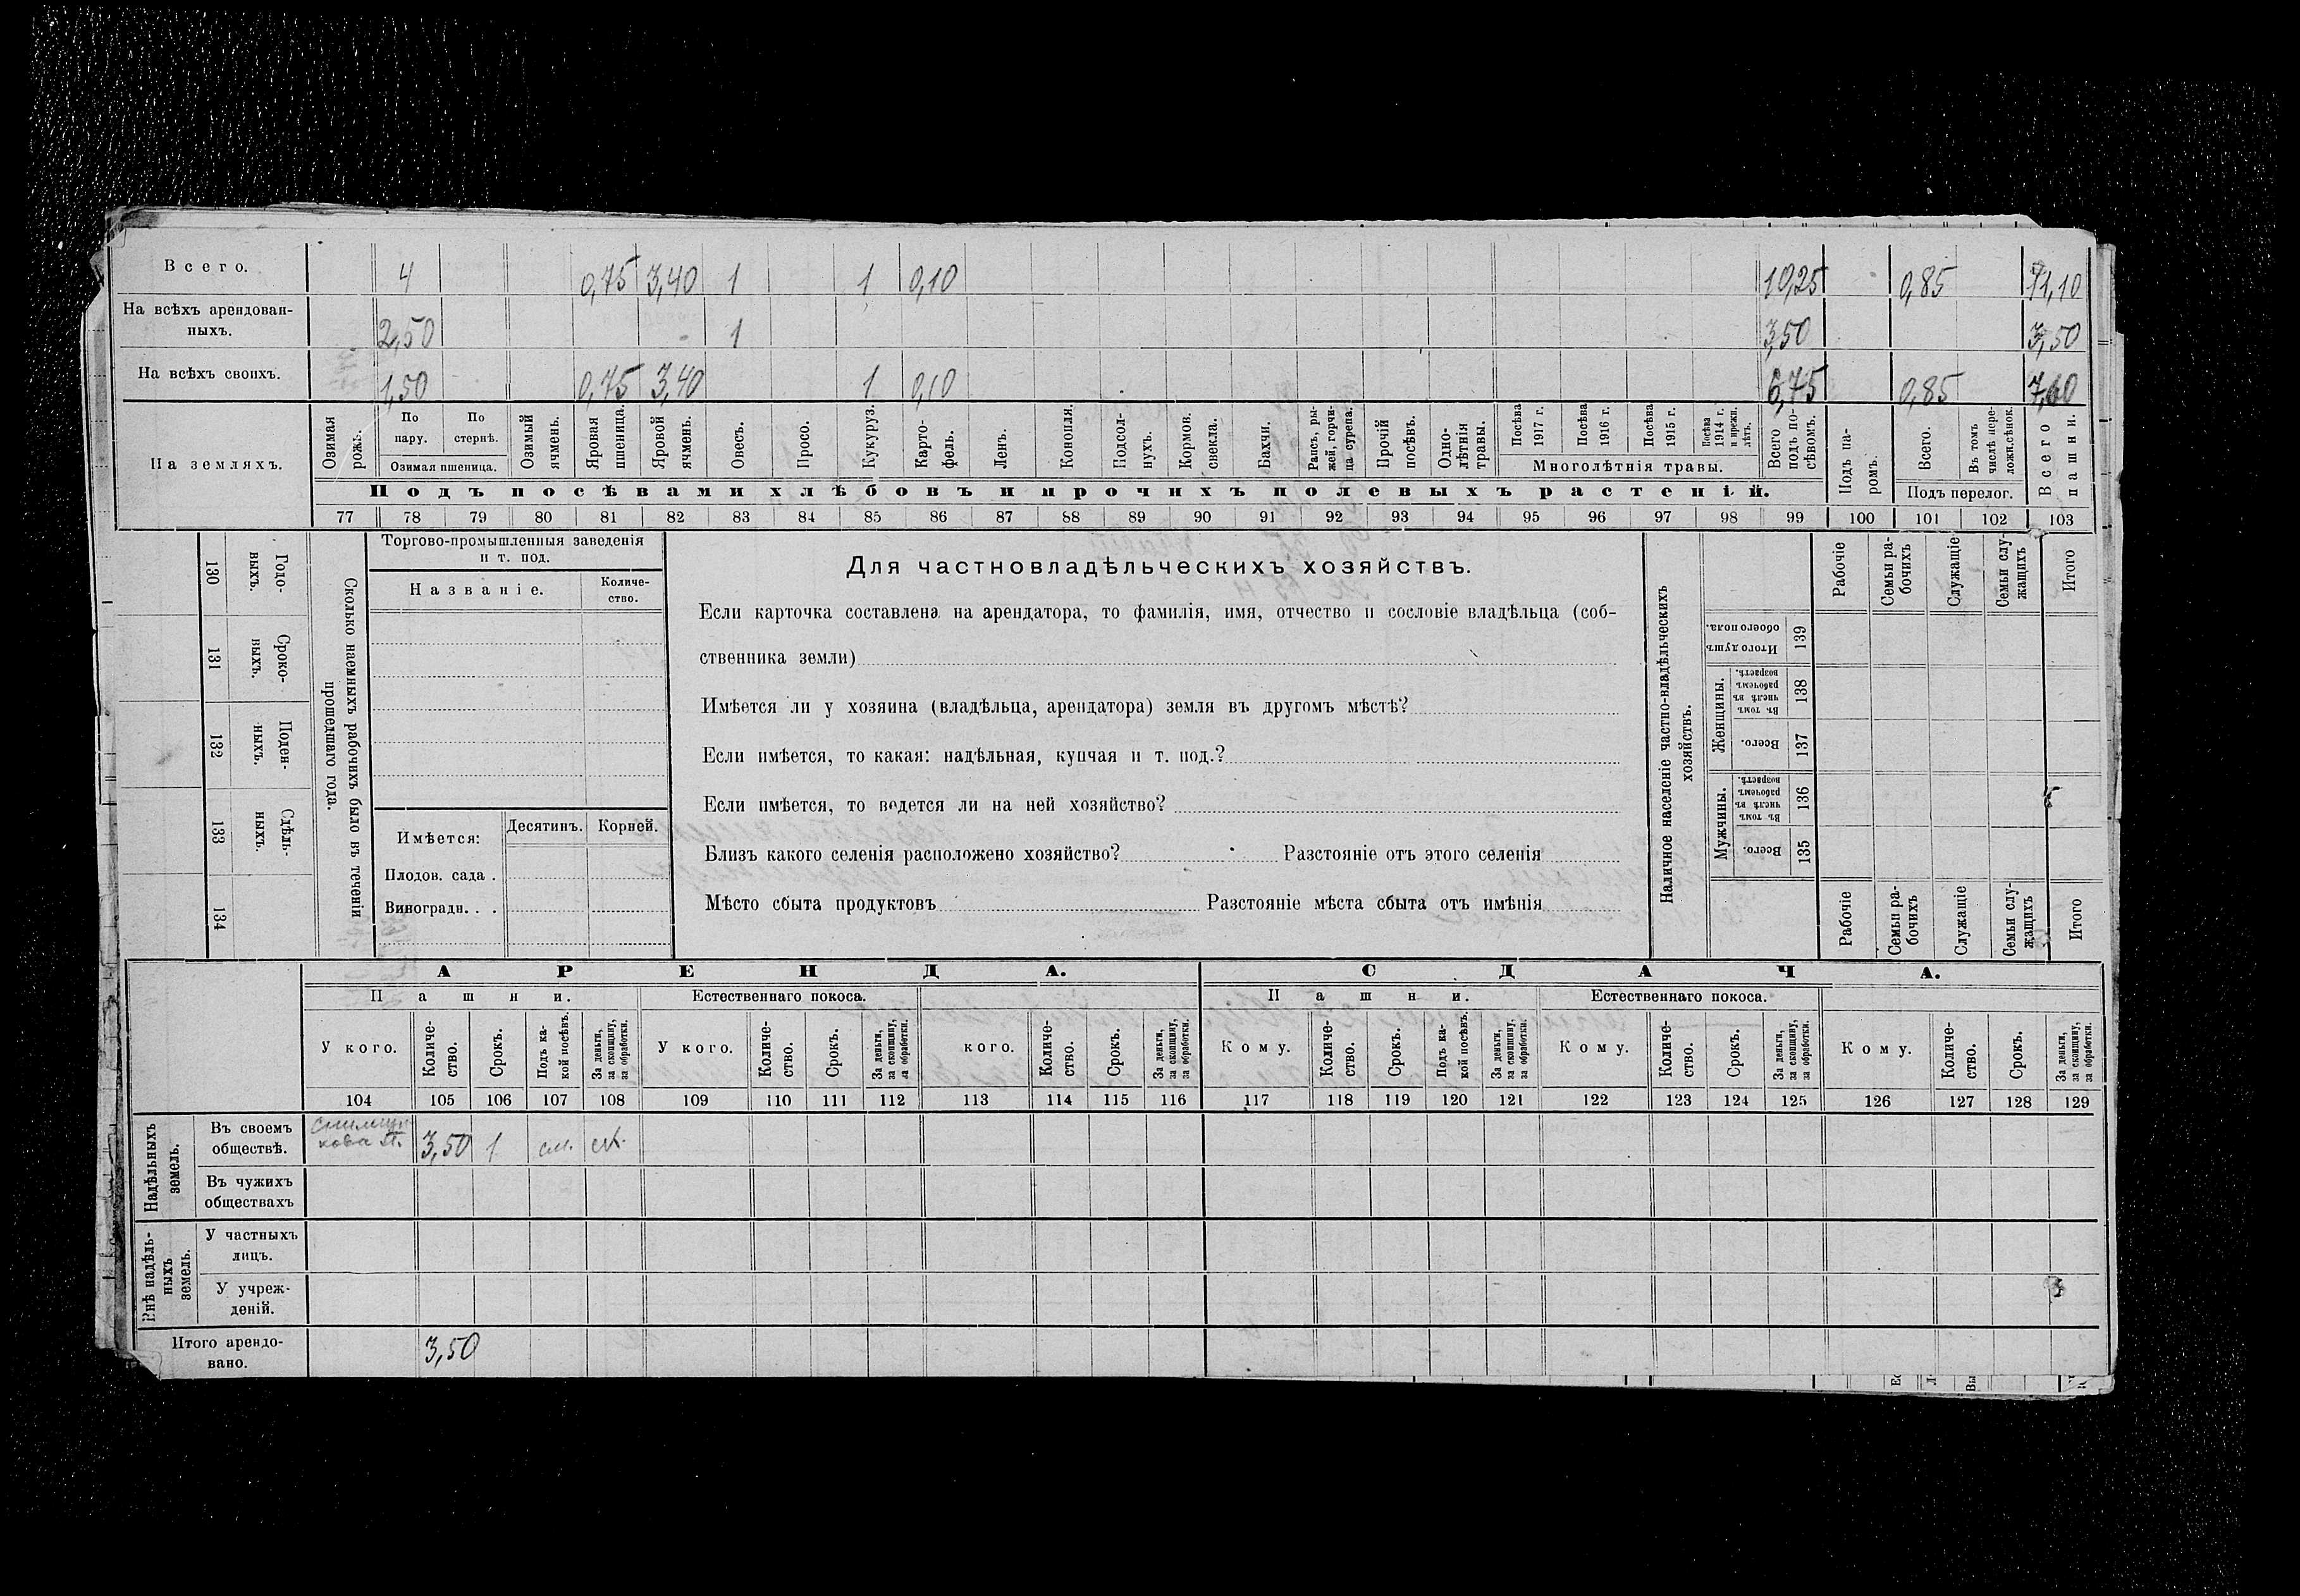 Всего. 4 0,75 3,40 1 1 0,10 10,25 0,85 11,10
На всѣхъ арендован-
ныхъ. 2,50 1 3,50 3,50
На всѣхъ своихъ. 1,50 0,75 3,40 1 0,10 6,75 0,85 7,60
На земляхъ.
Озимая рожь.
По пару.
По стернѣ.
Озимая пшеница.
Озимый ячмень.
Яровая пшеница.
Яровой ячмень.
Овесъ.
Просо.
Кукуруз.
Карто-
фель.
Ленъ.
Конопля.
Подсол-
нухъ.
Кормов.
свекла.
Бахчи.
Рапсъ, ры-
жей, горчи-
ца сурепа.
Прочій
посѣвъ.
Одно-
лѣтнія
травы.
Посѣва
1917 г.
Посѣва
1916 г.
Посѣва
1915 г.
Посѣва
1914 г.
и прежн.
лѣтъ.
Многолѣтнія травы.
Всего
подъ по-
сѣвомъ.
Подъ па-
ромъ.
Всего.
Въ томъ
числѣ пере-
ложн.сѣнок.
Подъ перелог.
Всего
пашни.
Подъ посѣвами хлѣбовъ и прочихъ полевыхъ растеній.
77 78 79 80 81 82 83 84 85 86 87 88 89 90 91 92 93 94 95 96 97 98 99 100 101 102 103
130 Годо-
выхъ.
131 Сроко-
ныхъ.
132 Поден-
ныхъ.
133 Сдѣль-
ныхъ.
134
Сколько наемныхъ рабочихъ было въ теченіи
прошедшаго года.
Торгово-промышленныя заведенія
и т. под.
Названіе.
Количе-
ство.
Имѣется: Десятинъ. Корней.
Плодов. сада .
Виноградн. . .
Для частновладѣльческихъ хозяйствъ.
Если карточка составлена на арендатора, то фамилія, имя, отчество и сословіе владѣльца (соб-
ственника земли)
Имѣется ли у хозяина (владѣльца, арендатора) земля въ другомъ мѣстѣ?
Если имѣется, то какая: надѣльная, купчая и т. под.?
Если имѣется, то ведется ли на ней хозяйство?
Близъ какого селенія расположено хозяйство? Разстояніе отъ этого селенія
Мѣсто сбыта продуктовъ Разстояніе мѣста сбыта отъ имѣнія
Наличное населеніе частно-владѣльческихъ
хозяйствъ.
Рабочіе
Семьи ра-
бочихъ
Служащіе
Семьи слу-
жащихъ
Итого
Итого душъ
обоего пола. 139
Женщины.
Въ томъ
числѣ въ
рабочемъ
возрастѣ. 138
Всего. 137
Мужчины.
Въ томъ
числѣ въ
рабочемъ
возрастѣ. 136
Всего. 135
Рабочіе
Семьи ра-
бочихъ
Служащіе
Семьи слу-
жащихъ
Итого
АРЕНДА. СДАЧА.
Пашни. Естественнаго покоса. Пашни. Естественнаго покоса.
У кого.
Количе-
ство.
Срокъ.
Подъ ка-
кой посѣвъ.
За деньги,
за скопщину,
за обработки.
У кого.
Количе-
ство.
Срокъ.
За деньги,
за скопщину,
за обработки.
кого.
Количе-
ство.
Срокъ.
За деньги,
за скопщину,
за обработки.
Кому.
Количе-
ство.
Срокъ.
Подъ ка-
кой посѣвъ.
За деньги,
за скопщину,
за обработки.
Кому.
Количе-
ство.
Срокъ.
За деньги,
за скопщину,
за обработки.
Кому.
Количе-
ство.
Срокъ.
За деньги,
за скопщину,
за обработки.
104 105 106 107 108 109 110 111 112 113 114 115 116 117 118 119 120 121 122 123 124 125 126 127 128 129
Надѣльныхъ
земель.
Въ своемъ
обществѣ. 3,50 1
Въ чужихъ
обществахъ
Внѣ надѣль-
ныхъ
земель.
У частныхъ
лицъ.
У учреж-
деній.
Итого арендо-
вано. 3,50